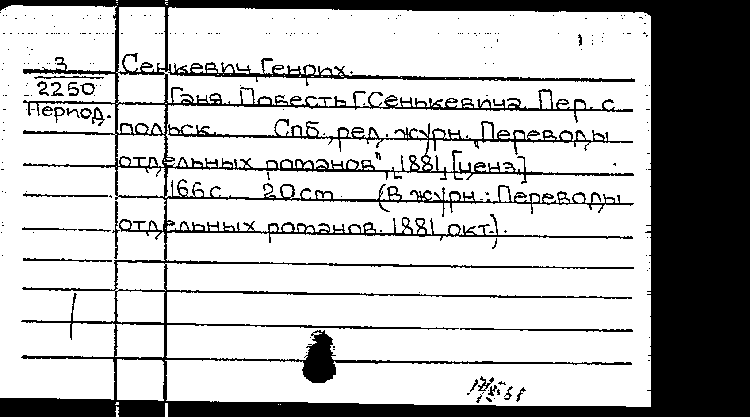 3
2250
Период.
Сенкевич, Генрих.
Ганя. Повесть Г. Сенькевича. Пер. с
польск. Спб., ред. журн. "Переводы
отдельных романов", 1881, [ценз.]
166 с. 20 см (В журн.: Переводы
отдельных романов. 1881, окт.).